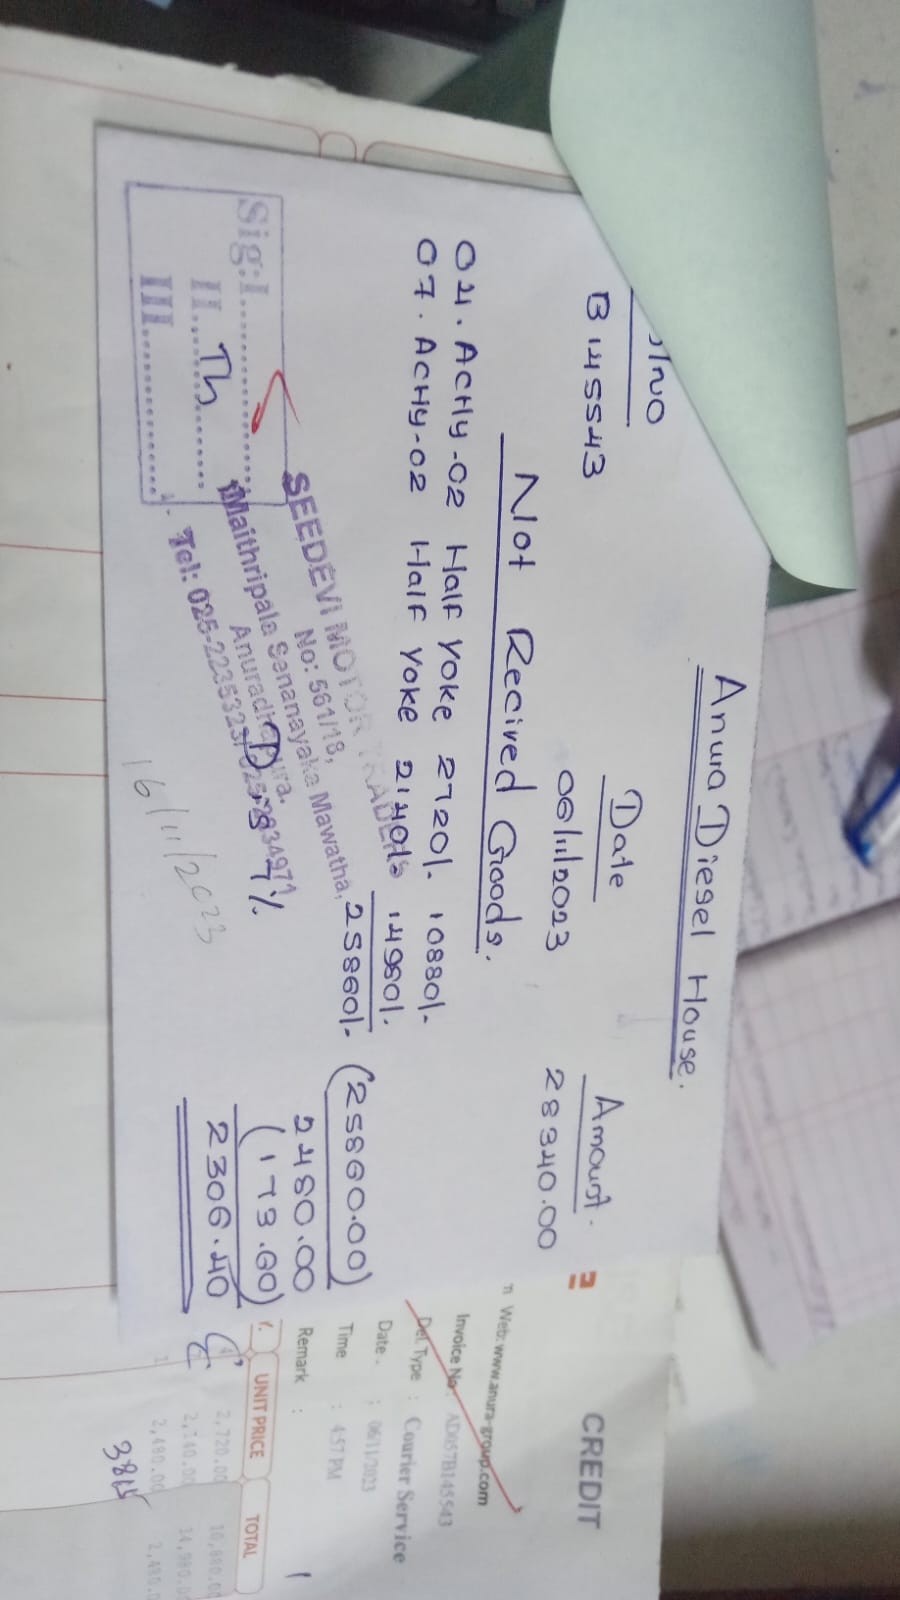 Anura Diesel House.
Date
Amount.
B 145543
06/11/2023
28340.00
Not Recived Goods.
04. ACHy-02 Half Yoke 2720/- 10880/-
07. ACHy-02 Half Yoke 2140/- 14980/-
25860/-
(25860.00)
2480.00
(173.60)
2306.40
D.S 7%
SEEDEVI MOTOR TRADERS
No: 561/18,
Maithripala Senanayaka Mawatha,
Anuradhapura.
Tel: 025-2235323
Sig:I
II
III
16/11/2023
CREDIT
Web: www.anura-group.com
Invoice No : AD057B145543
Del. Type : Courier Service
Date : 06/11/2023
Time : 4:57 PM
Remark :
UNIT PRICE TOTAL
2,720.00 10,880.00
2,140.00 14,980.00
2,480.00